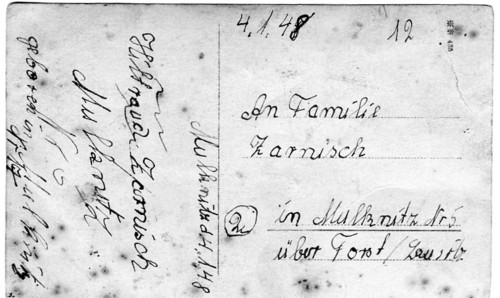 4.1.48
12
An Familie
Zarnisch
2
in Mulknitz Nr 5
über Forst/Lausitz
Mulknitz d 4.1.48
Hiltraud Zarnisch
Mulknitz
geboren in Mulknitz